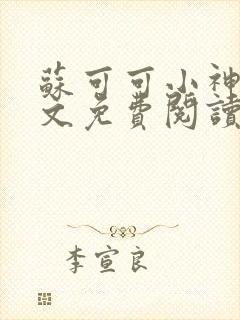 蘇可可小神
文免費閱讀
李宣良